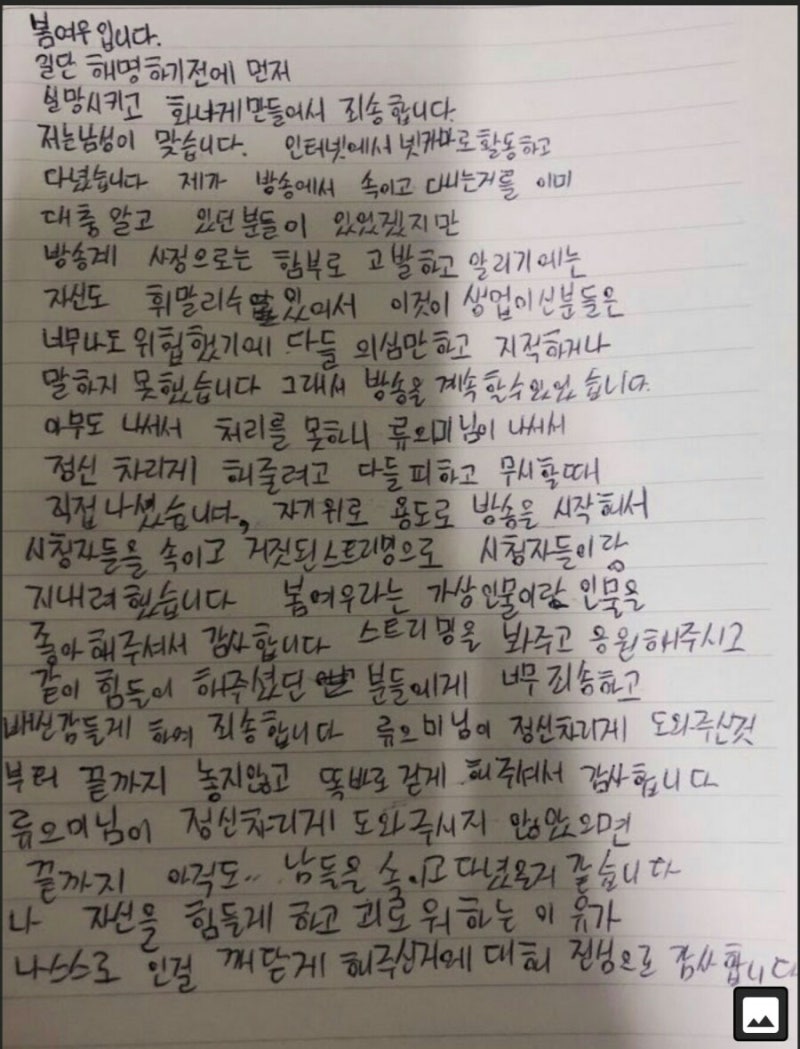 봄여우입니다.
일단 해명하기전에 먼저
실망시키고 화나게만들어서 죄송합니다.
저는남성이 맞습니다. 인터넷에서 넷카마로활동하고
다녔습니다 제가 방송에서 속이고 다니는거를 이미
대충알고 있던분들이 있었겠지만
방송계 사정으로는 함부로 고발하고 알리기에는
자신도 휘말리수 있어서 이것이 생업이신분들은
너무나도 위험했기에 다들 의심만하고 지적하거나
말하지 못했습니다 그래서 방송을 계속할수있었습니다.
아무도 나서서 처리를 못하니 류으미님이 나서서
정신 차리게 해줄려고 다들피하고 무시할때
직접나셨습니다, 자기위로 용도로 방송을 시작해서
시청자들을 속이고 거짓된스트리밍으로 시청자들이랑
지내려했습니다 봄여우라는 가상인물이란 인물을
좋아해주셔서 감사합니다 스트리밍을 봐주고 응원해주시고
같이 힘들어 해주셨던 분들에게 너무죄송하고
배신감들게 하여 죄송합니다 류으미님이 정신차리게 도와주신것
부터 끝까지 놓지않고 똑바로걷게 해주셔서 감사합니다
류으미님이 정신차리게 도와주시지 않았으면
끝까지 아직도.. 남들을 속이고다녔을거 같습니다
나 자신을 힘들게 하고 괴로워하는 이유가
나스스로 인걸 깨닫게 해주신거에대해 진심으로 감사합니다